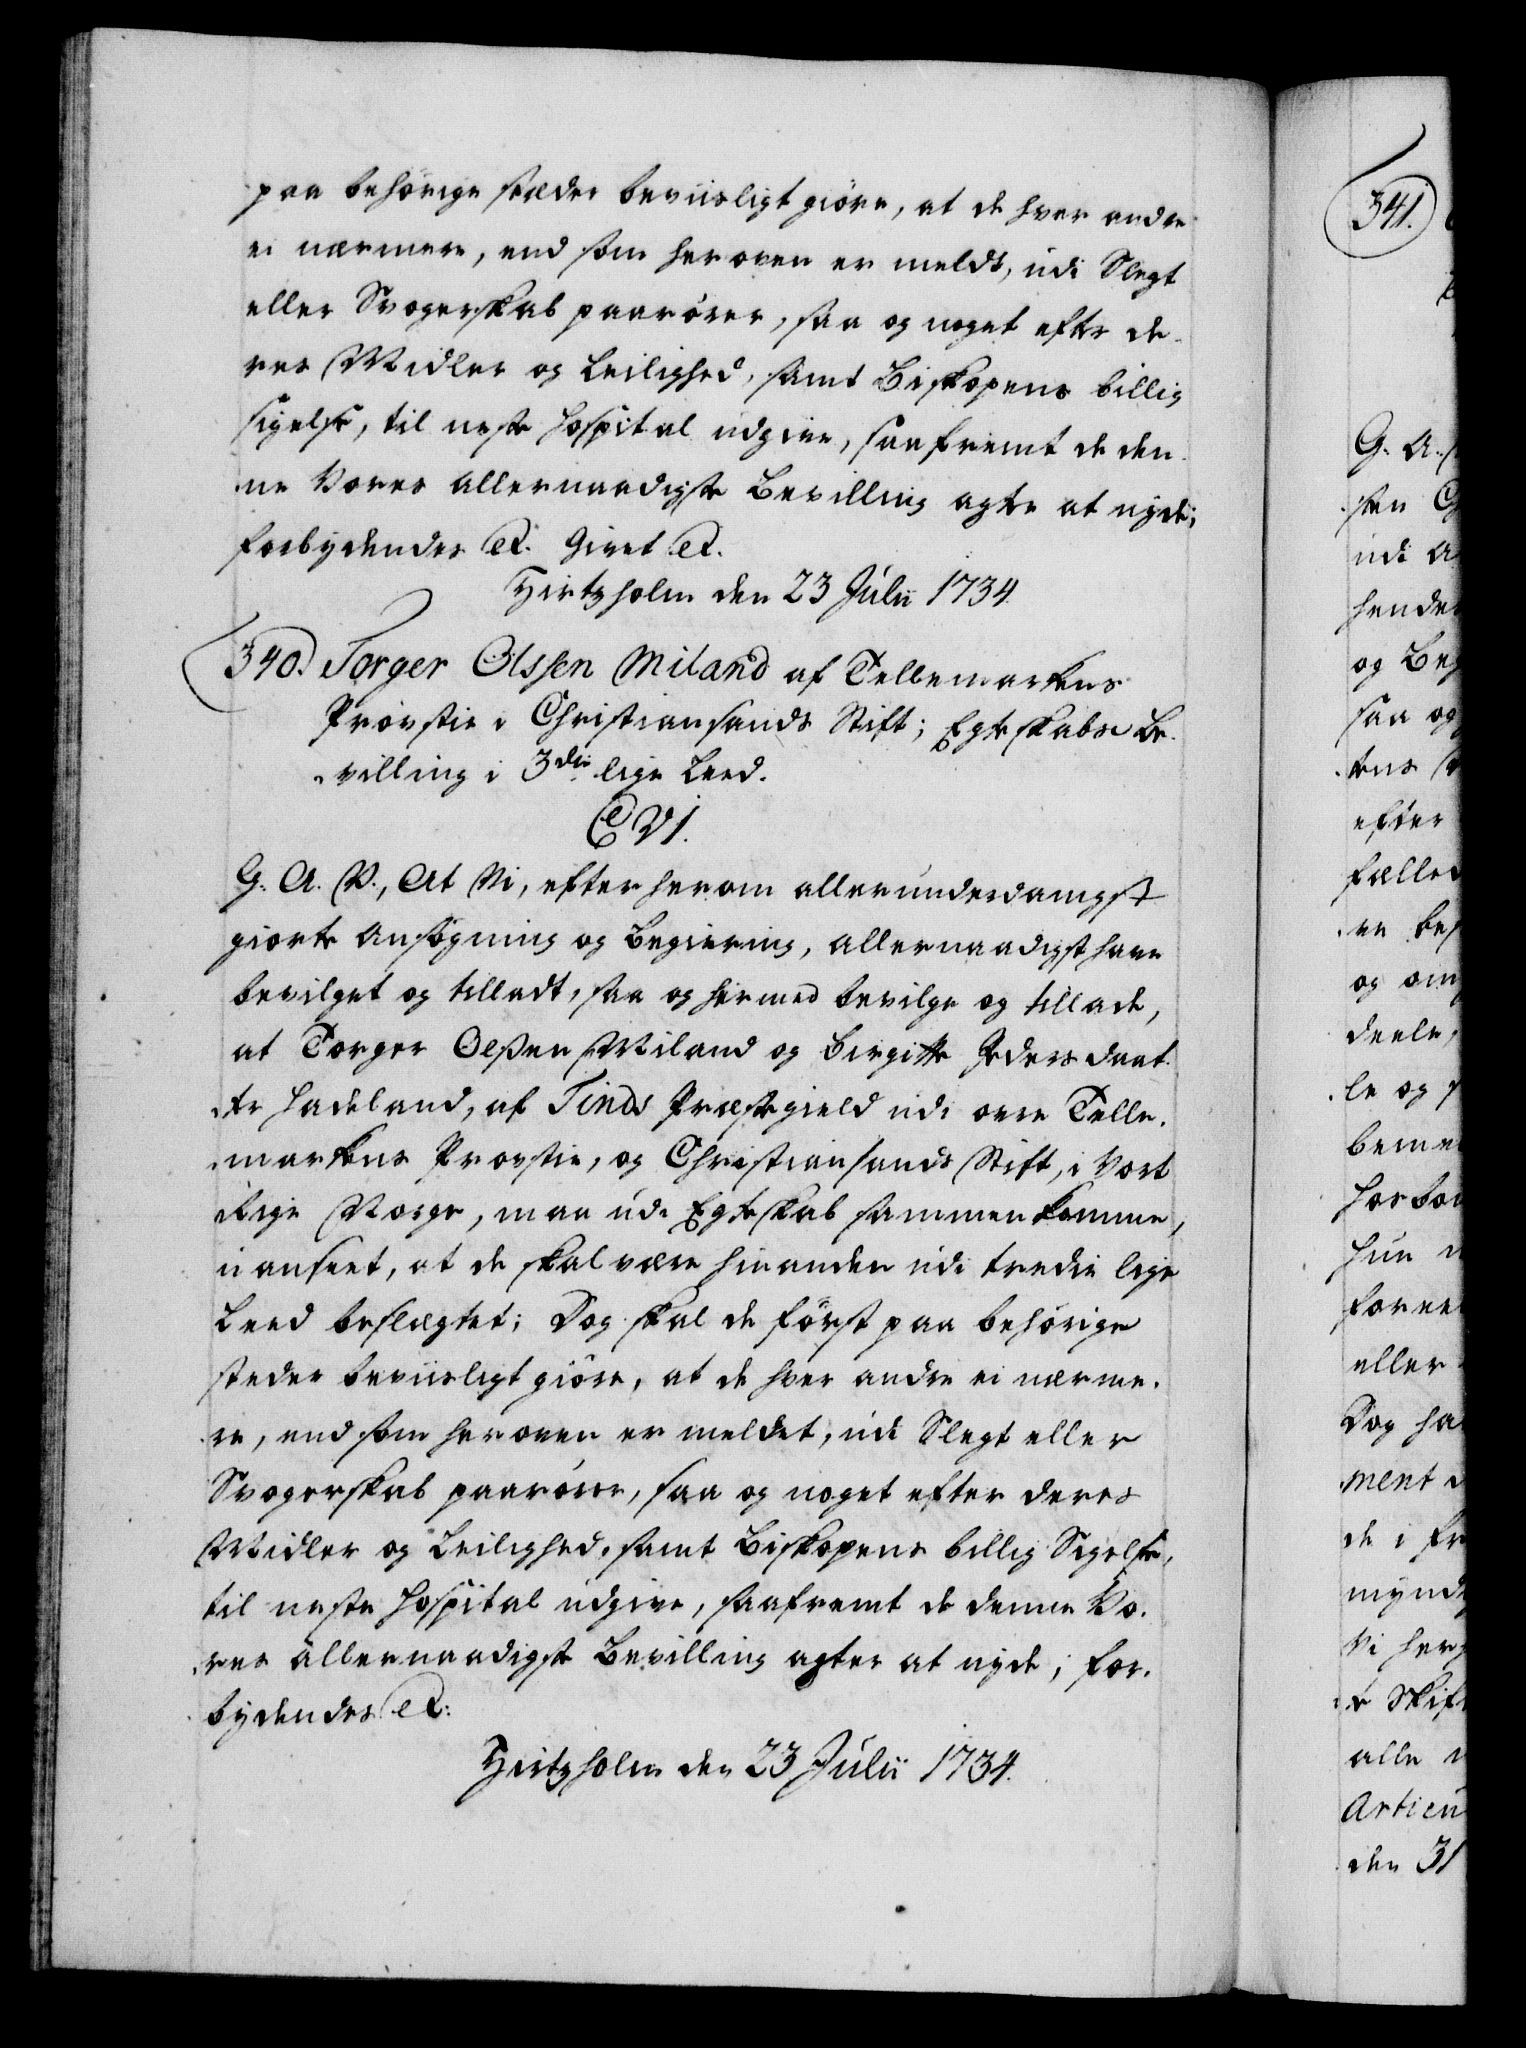 paa behørige stæder beviisligt giøre, at de hver andre
ei nærmere, end som her oven er meldt, udi Slegt
eller Svogerskab paarører, saa og noget efter de-
res Midler og Leilighed, samt Biskopens billig
sigelse, til neste Hospital udgive, saafremt de den-
ne Vores allernaadigste Bevilling agte at nyde;
forbydendes etc. Givet etc.
Hirtzholm den 23 Julii 1734.
340. Torger Olssen Miland af Tellemarkens
Provstie i Christiansands Stift; Egteskabs Be-
villing i 3die lige Leed.
C VI.
G. A. V., At Vi, efter herom allerunderdanigst
giorte Ansøgning og Begiering, allernaadigst have
bevilget og tilladt, saa og hermed bevilge og tillade,
at Torger Olssen Miland og Birgitte Peders daat-
ter Hadeland, af Tinds Præstegield udi øvre Telle-
markens Provstie, og Christiansands Stift, i Vort
Rige Norge, maa udi Egteskab sammenkomme,
uanseet, at de skal være hinanden udi tredie lige
Leed beslægtet; Dog skal de først paa behørige
steder beviisligt giøre, at de hver andre ei nærme-
re, end som heroven er meldet, udi Slegt eller
Svogerskab paarører, saa og noget efter deres
Midler og Leilighed, samt Biskopens billig Sigelse,
til neste Hospital udgive, saafremt de denne Vo-
res allernaadigste Bevilling agter at nyde; for-
bydendes etc:
Hirtzholm den 23 Julii 1734.
341.
G. A.
sten
udi A
hendes
og Beg
saa og
tens
efter
fælled
re bes
og om
deele,
le og
beme
hos bo
hun
forne
eller
Dog ha
ment
de i fr
mynd
Vi her
te Skif
alle
Articu
den 31